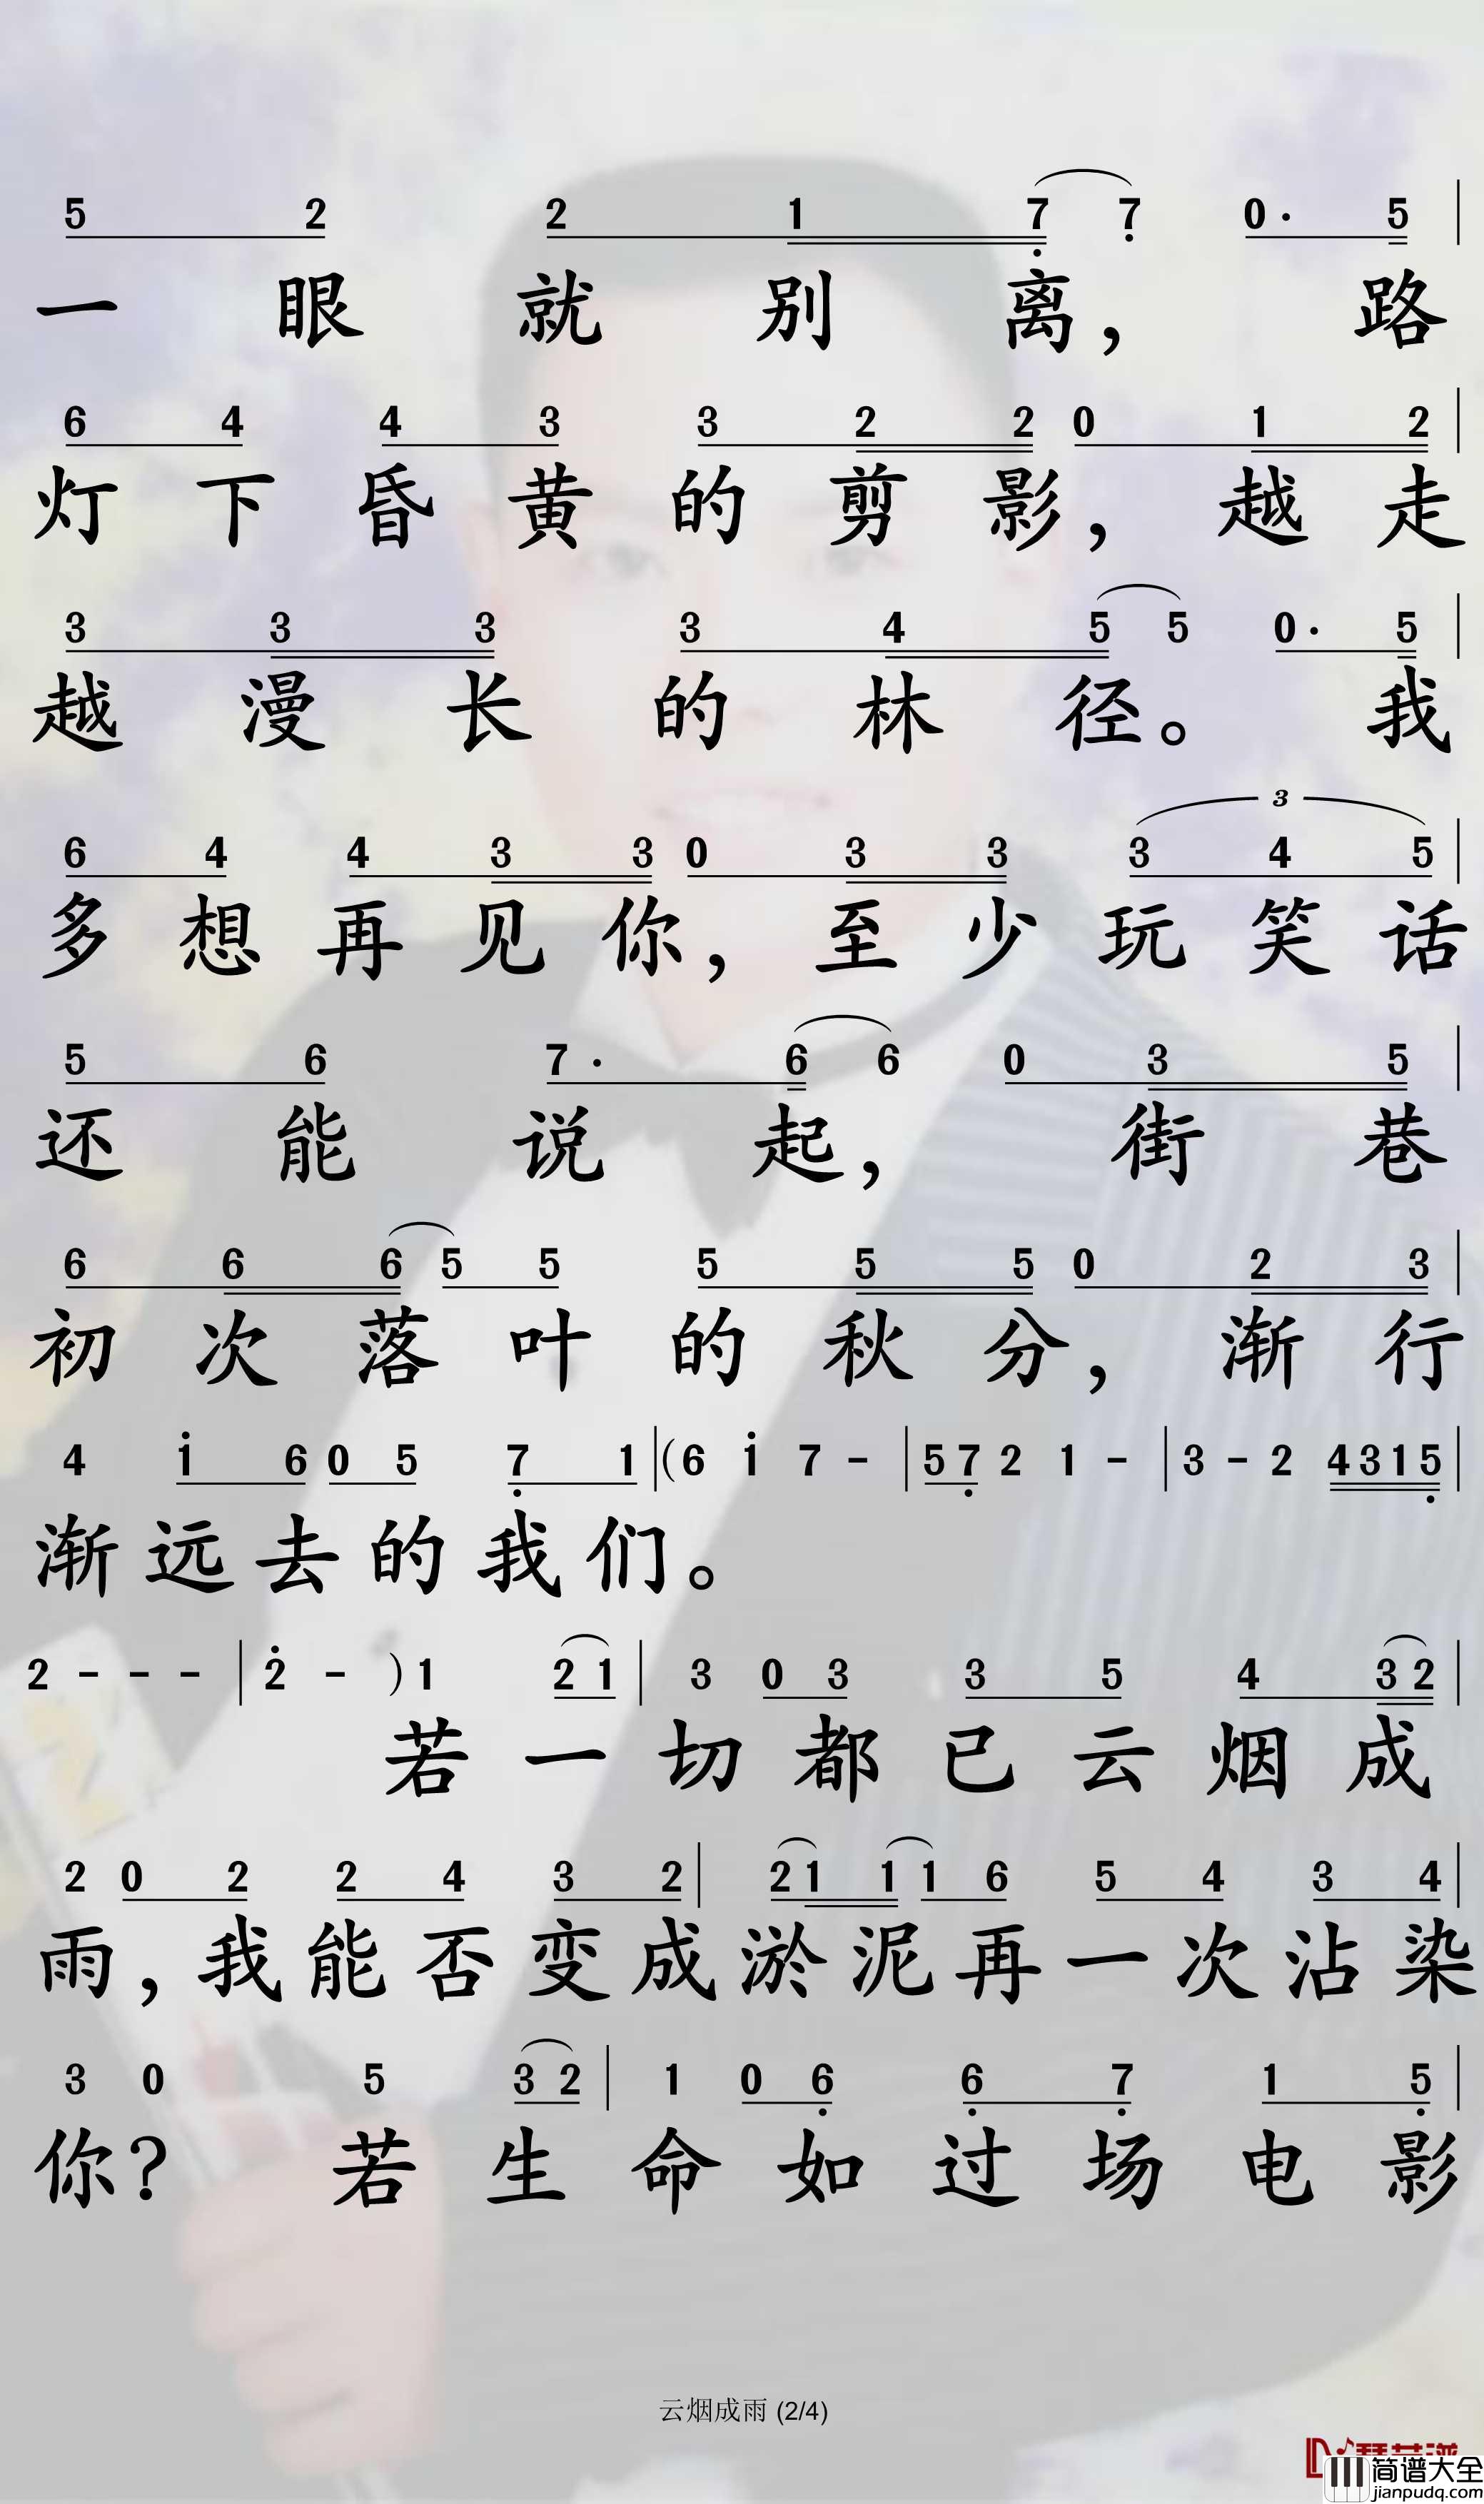 5 2 2 1 7 7 0· 5
一眼就别离，路
6 4 4 3 3 2 2 0 1 2
灯下昏黄的剪影，越走
3 3 3 3 4 5 5 0· 5
越漫长的林径。我
3
6 4 4 3 3 0 3 3 3 4 5
多想再见你，至少玩笑话
5 6 7· 6 6 0 3 5
还能说起，街巷
6 6 6 5 5 5 5 5 0 2 3
初次落叶的秋分，渐行
4 1 6 0 5 7 1 | (6 1 7 - | 5 7 2 1 - | 3 - 2 4 3 1 5 |
渐远去的我们。
2 - - - | 2 - ) 1 2 1 | 3 0 3 3 5 4 3 2 |
若一切都已云烟成
2 0 2 2 4 3 2 | 2 1 1 1 6 5 4 3 4 |
雨，我能否变成淤泥再一次沾染
3 0 5 3 2 | 1 0 6 6 7 1 5 |
你？若生命如过场电影
云烟成雨 (2/4)
简谱大全
jianpudq.com